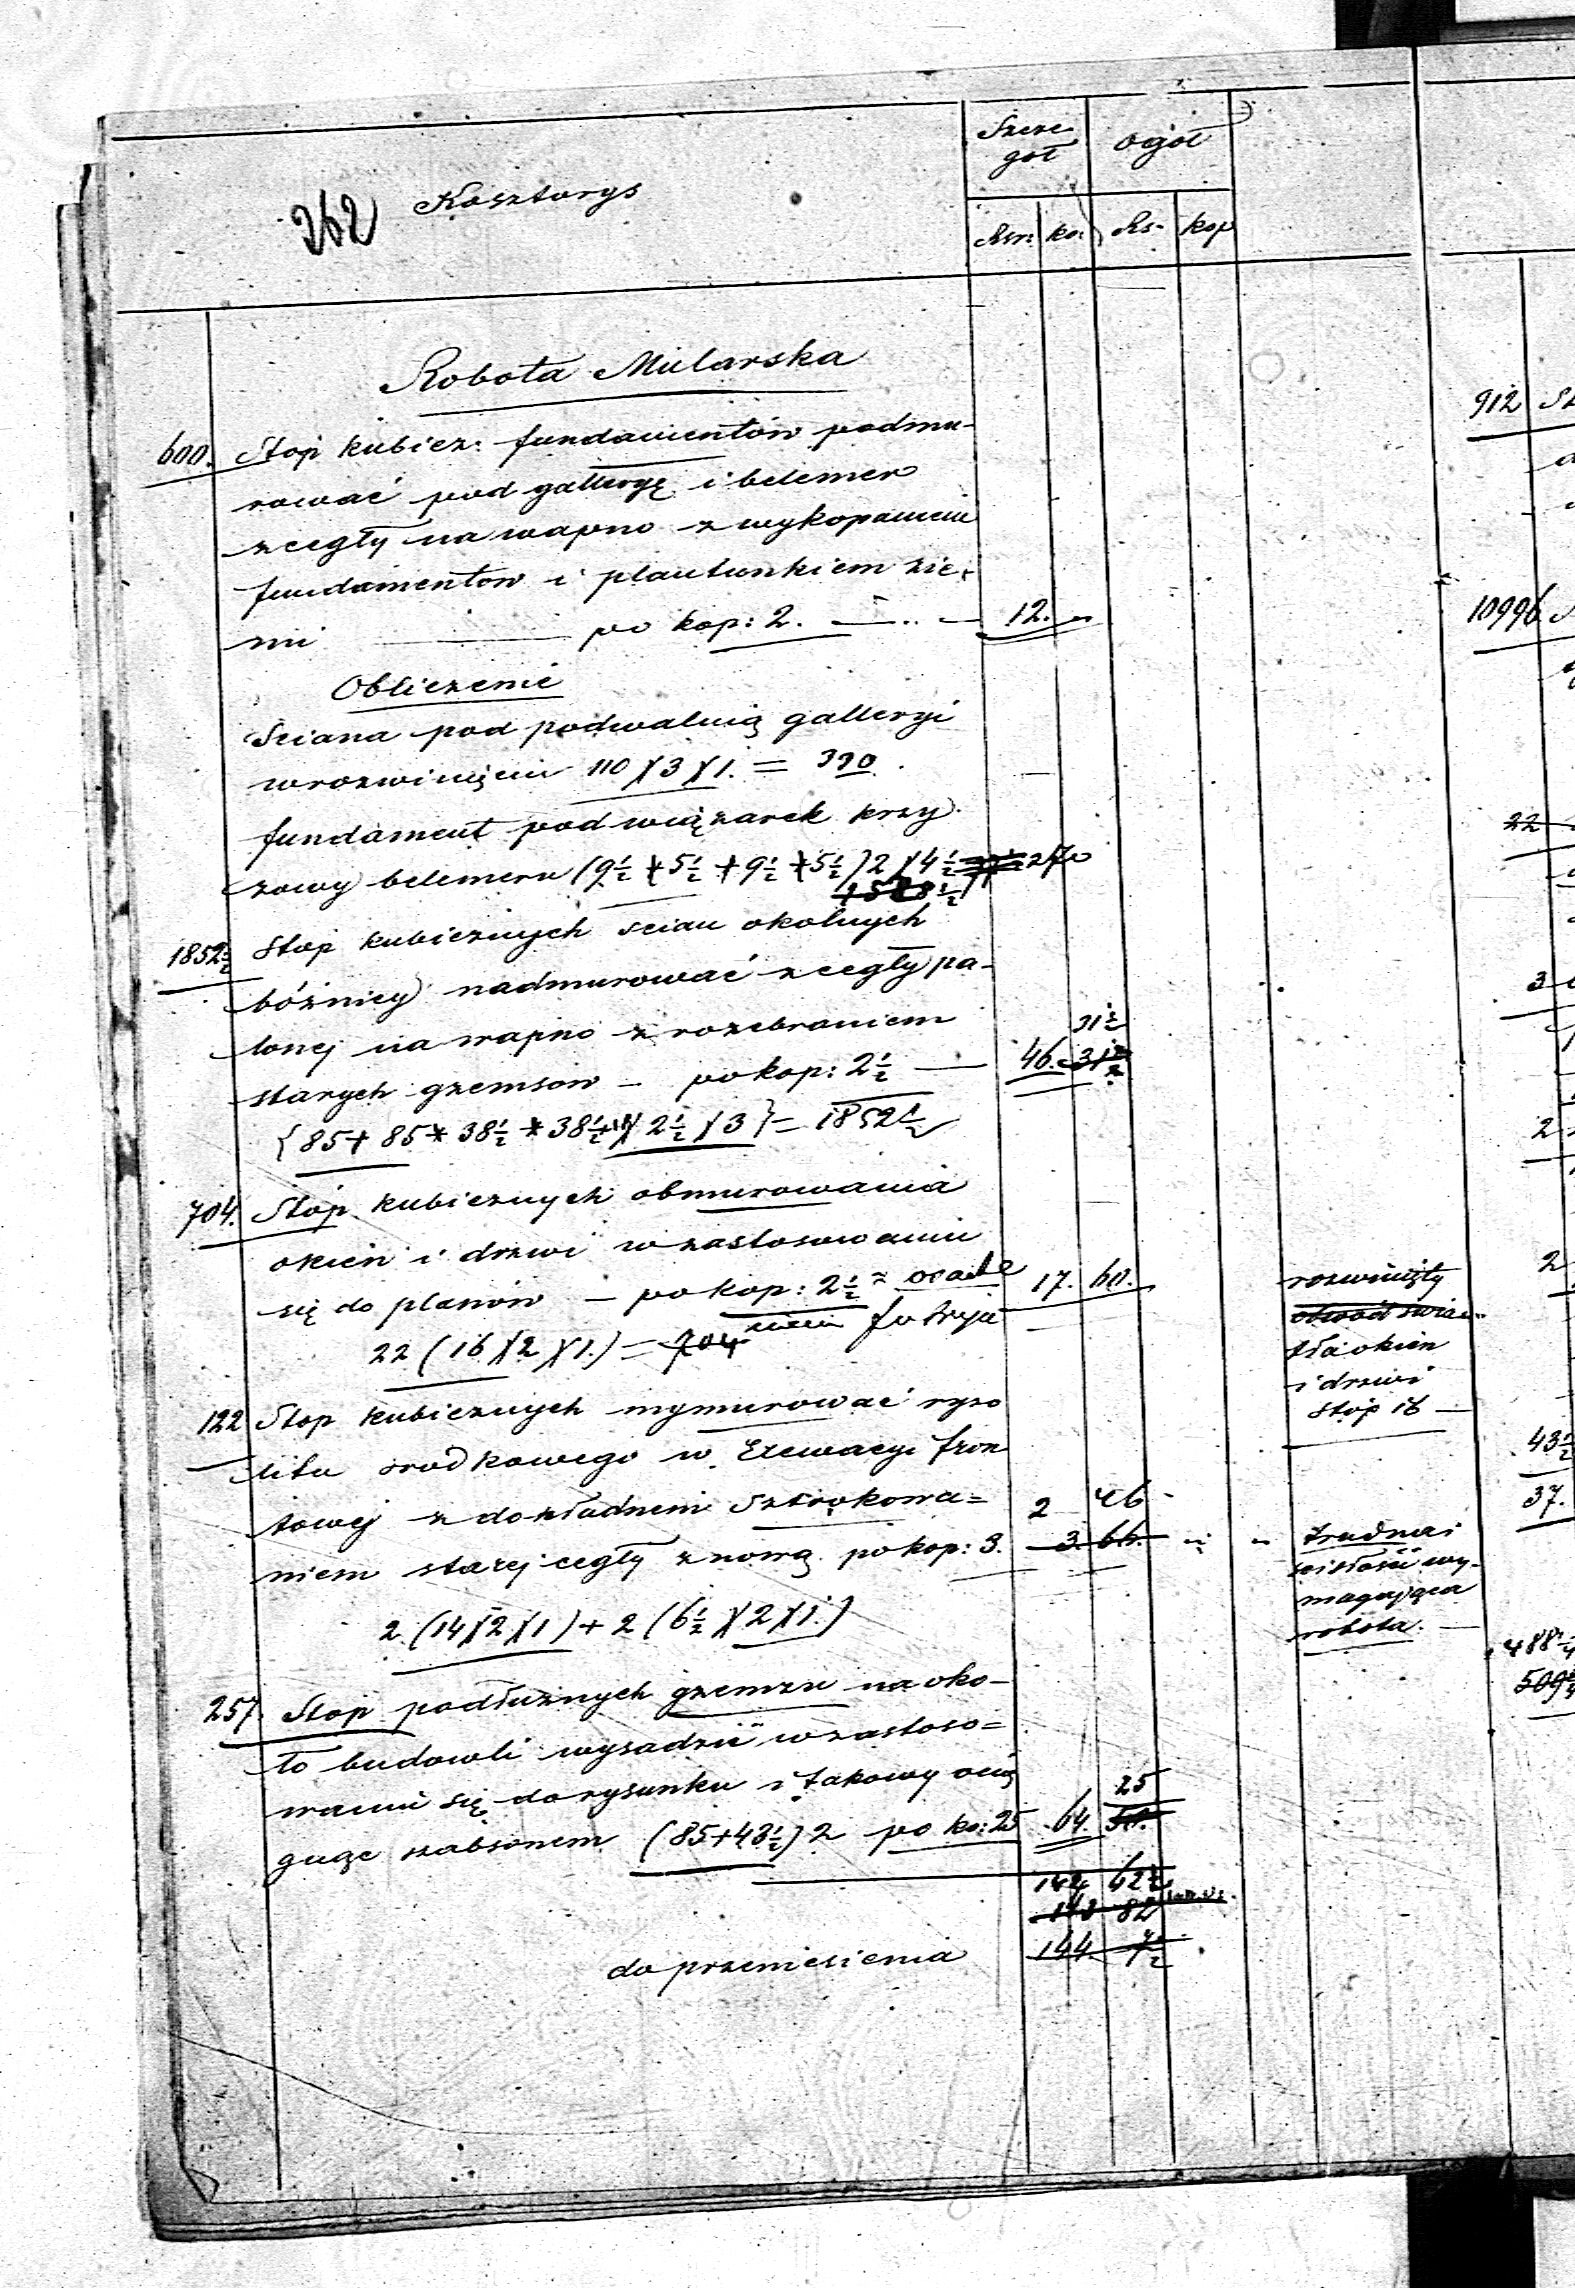 Szcze ogół
gół
262 Kosztorys
Rsr: ko: Rs. kop
Robota Mularska
600. Stóp kubicz: fundamentów podmu-
rować pod galleryę i belemer
z cegły na wapno z wykopaniem
fundamentow i plantunkiem zie-
mi po kop: 2. 12. "
Obliczenie
Sciana pod podwalnią galleryi
w rozwinięciu 110 X 3 X 1. = 330.
fundament pod wiązarek krzy
żowy belemeru (9½ + 5½ + 9½ + 5½) 2 X 4½ 270
1852½ Stóp kubicznych scian okolnych
bóżnicy nadmurować z cegły pa-
lonej na wapno z rozebraniem
31½
starych gzemsów – po kop: 2½ — 46. 31½
{85 + 85 + 38½ + 38½ X 2½ X 3} = 1852½
704. Stóp kubicznych obmurowania
okien i drzwi w zastosowaniu
się do planów – po kop: 2½ z osadze
niem futryn 17. 60.
22 (16 X 2 X 1.) = 704
rozwinięty
obwód świa-
tła okien
i drzwi
stóp 16 —
122 Stop kubicznych wymurować ryza
litu srodkowego w Elewacyi fron
towej z dokładnem Sztrokowa= 2 46
niem starej cegły z nową po kop: 3. 3. 66. " "
trudna i
scisłości wy-
magająca
robota.
2. (14 X 2 X 1) + 2 (6½ X 2 X 1.)
257. Stop podłużnych gzemzu na oko-
ło budowli wysadzić w zastoso=
waniu się do rysunku i takowy ocią
25
gnąc szabsonem (85 + 43½) 2 po ko: 25 64. 50.
142 62½
143 82
do przeniesienia 144 7½
912
10996
22
3
2
2
43½
37.
488¼
509¼